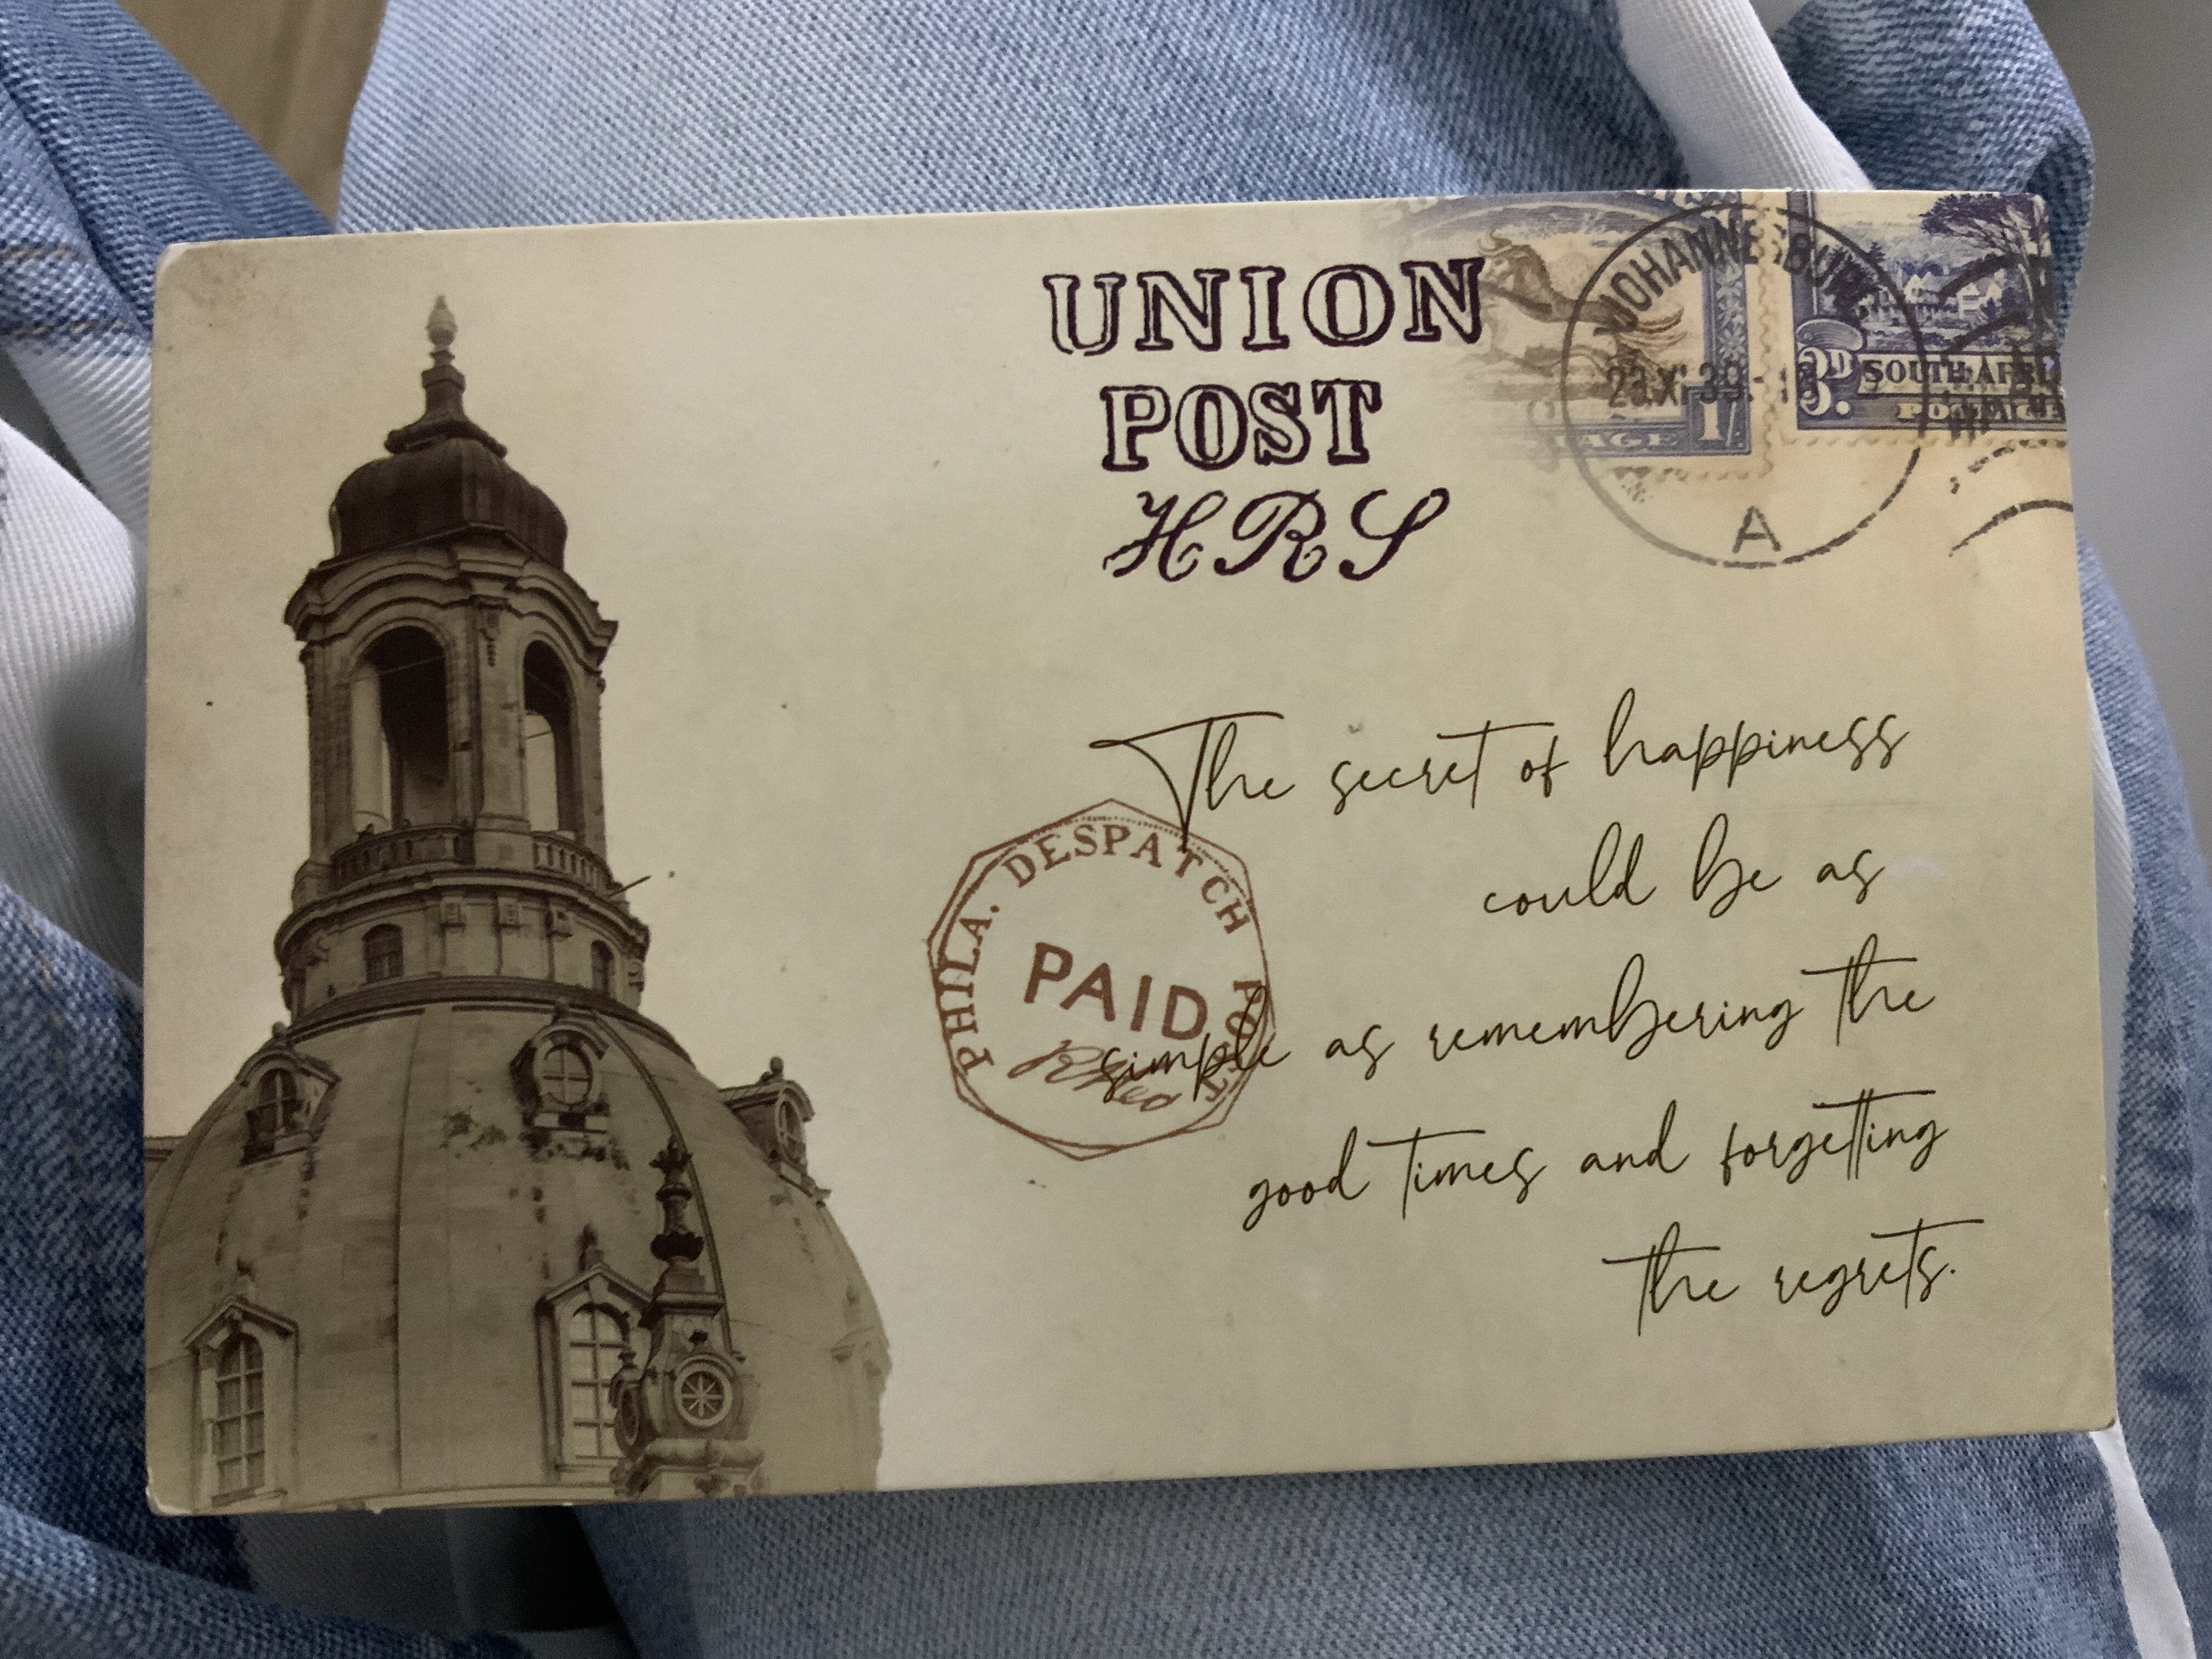 UNION
POST
HRS
JOHANNESBURG
23 XI 39
A
AGE 1/
3D.
SOUTH AFRI
POSTAGE
PHILA. DESPATCH POST
PAID
The secret of happiness
could be as
simple as remembering the
good times and forgetting
the regrets.